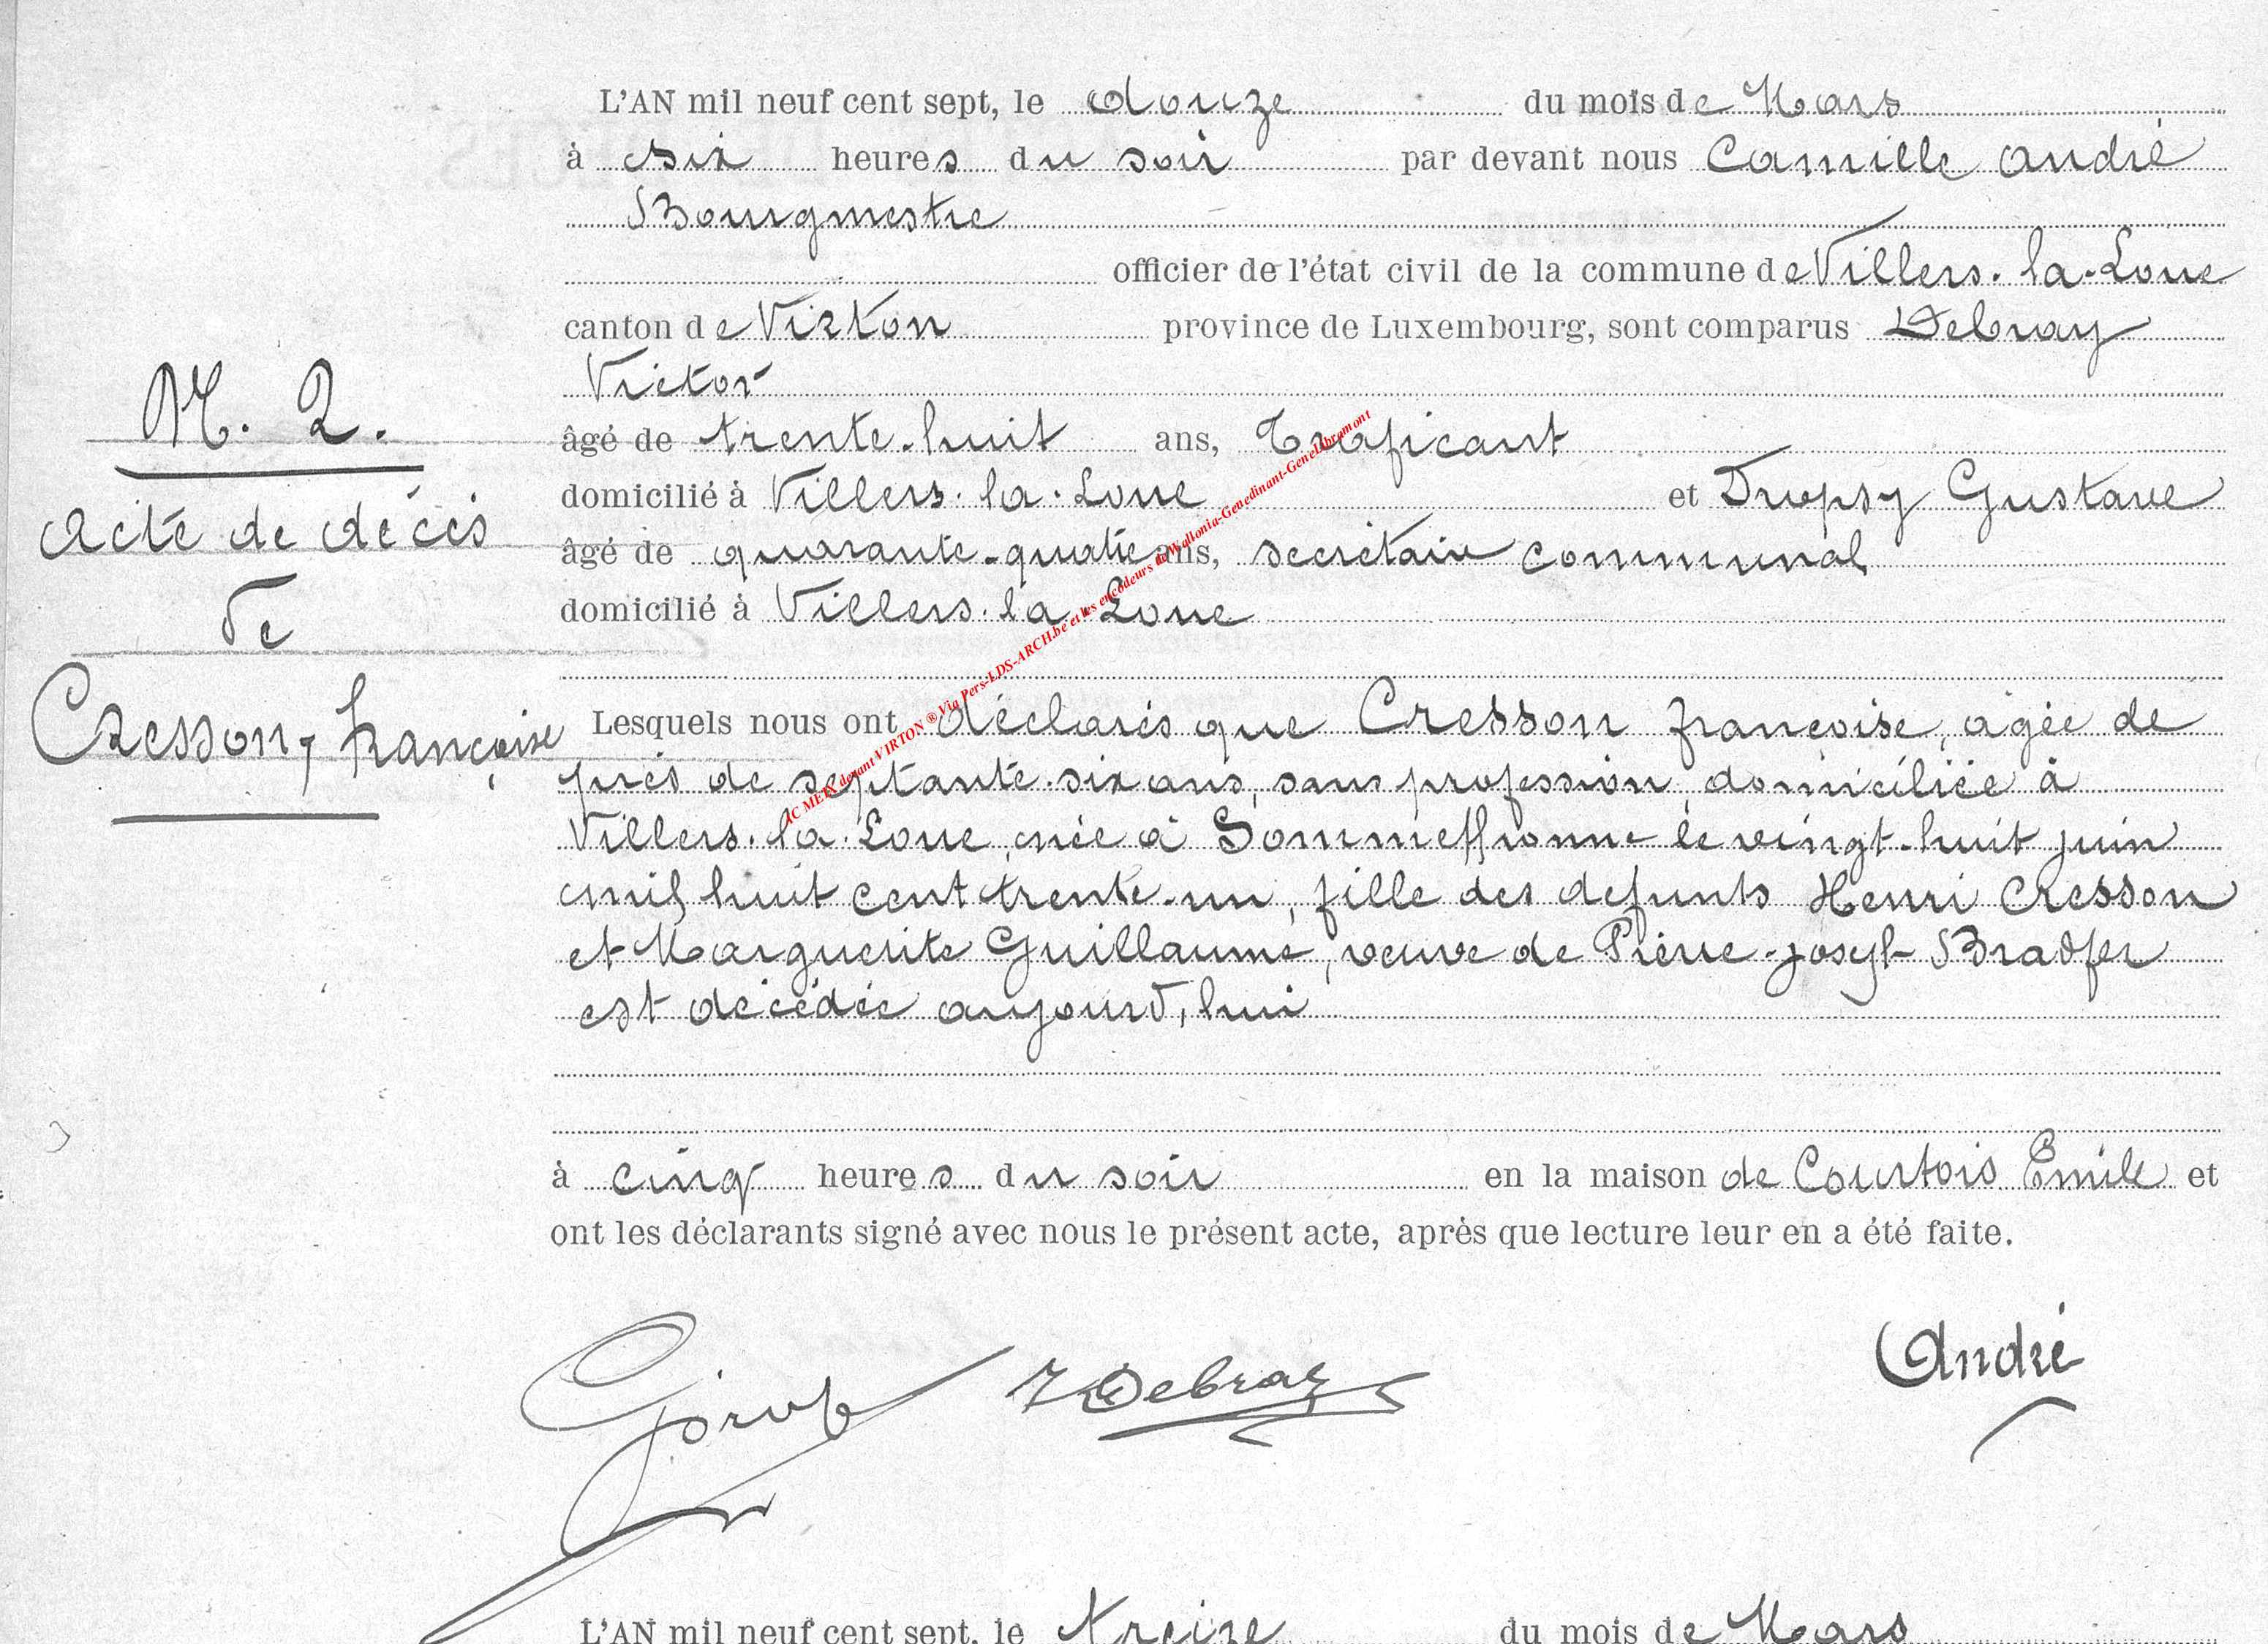 L'AN mil neuf cent sept, le douze du mois de Mars
à six heures du soir par devant nous Camille André
Bourgmestre
officier de l'état civil de la commune de Villers-la-Loue
canton de Virton province de Luxembourg, sont comparus Debray
Victor
âgé de trente-huit ans, Traficant
domicilié à Villers-la-Loue et Dropsy Gustave
âgé de quarante-quatre ans, secrétaire communal
domicilié à Villers-la-Loue
N. 2.
Acte de décès
de
Cresson, françoise
Lesquels nous ont déclarés que Cresson françoise, agée de
près de septante-six ans, sans profession, domiciliée à
Villers-la-Loue, née à Sommethonne le vingt-huit juin
mil huit cent trente-un, fille des defunts Henri Cresson
et Marguerite Guillaume, veuve de Pierre-joseph Bradfer
est décédée aujourd'hui
à cinq heures du soir en la maison de Courtois Emile et
ont les déclarants signé avec nous le présent acte, après que lecture leur en a été faite.
VDebray André
AC METX devant VIRTON ® Via Pers-LDS-ARCH.be et les encodeurs de Wallonia-Genedinant-Genelibramont
L'AN mil neuf cent sept, le treize du mois de Mars